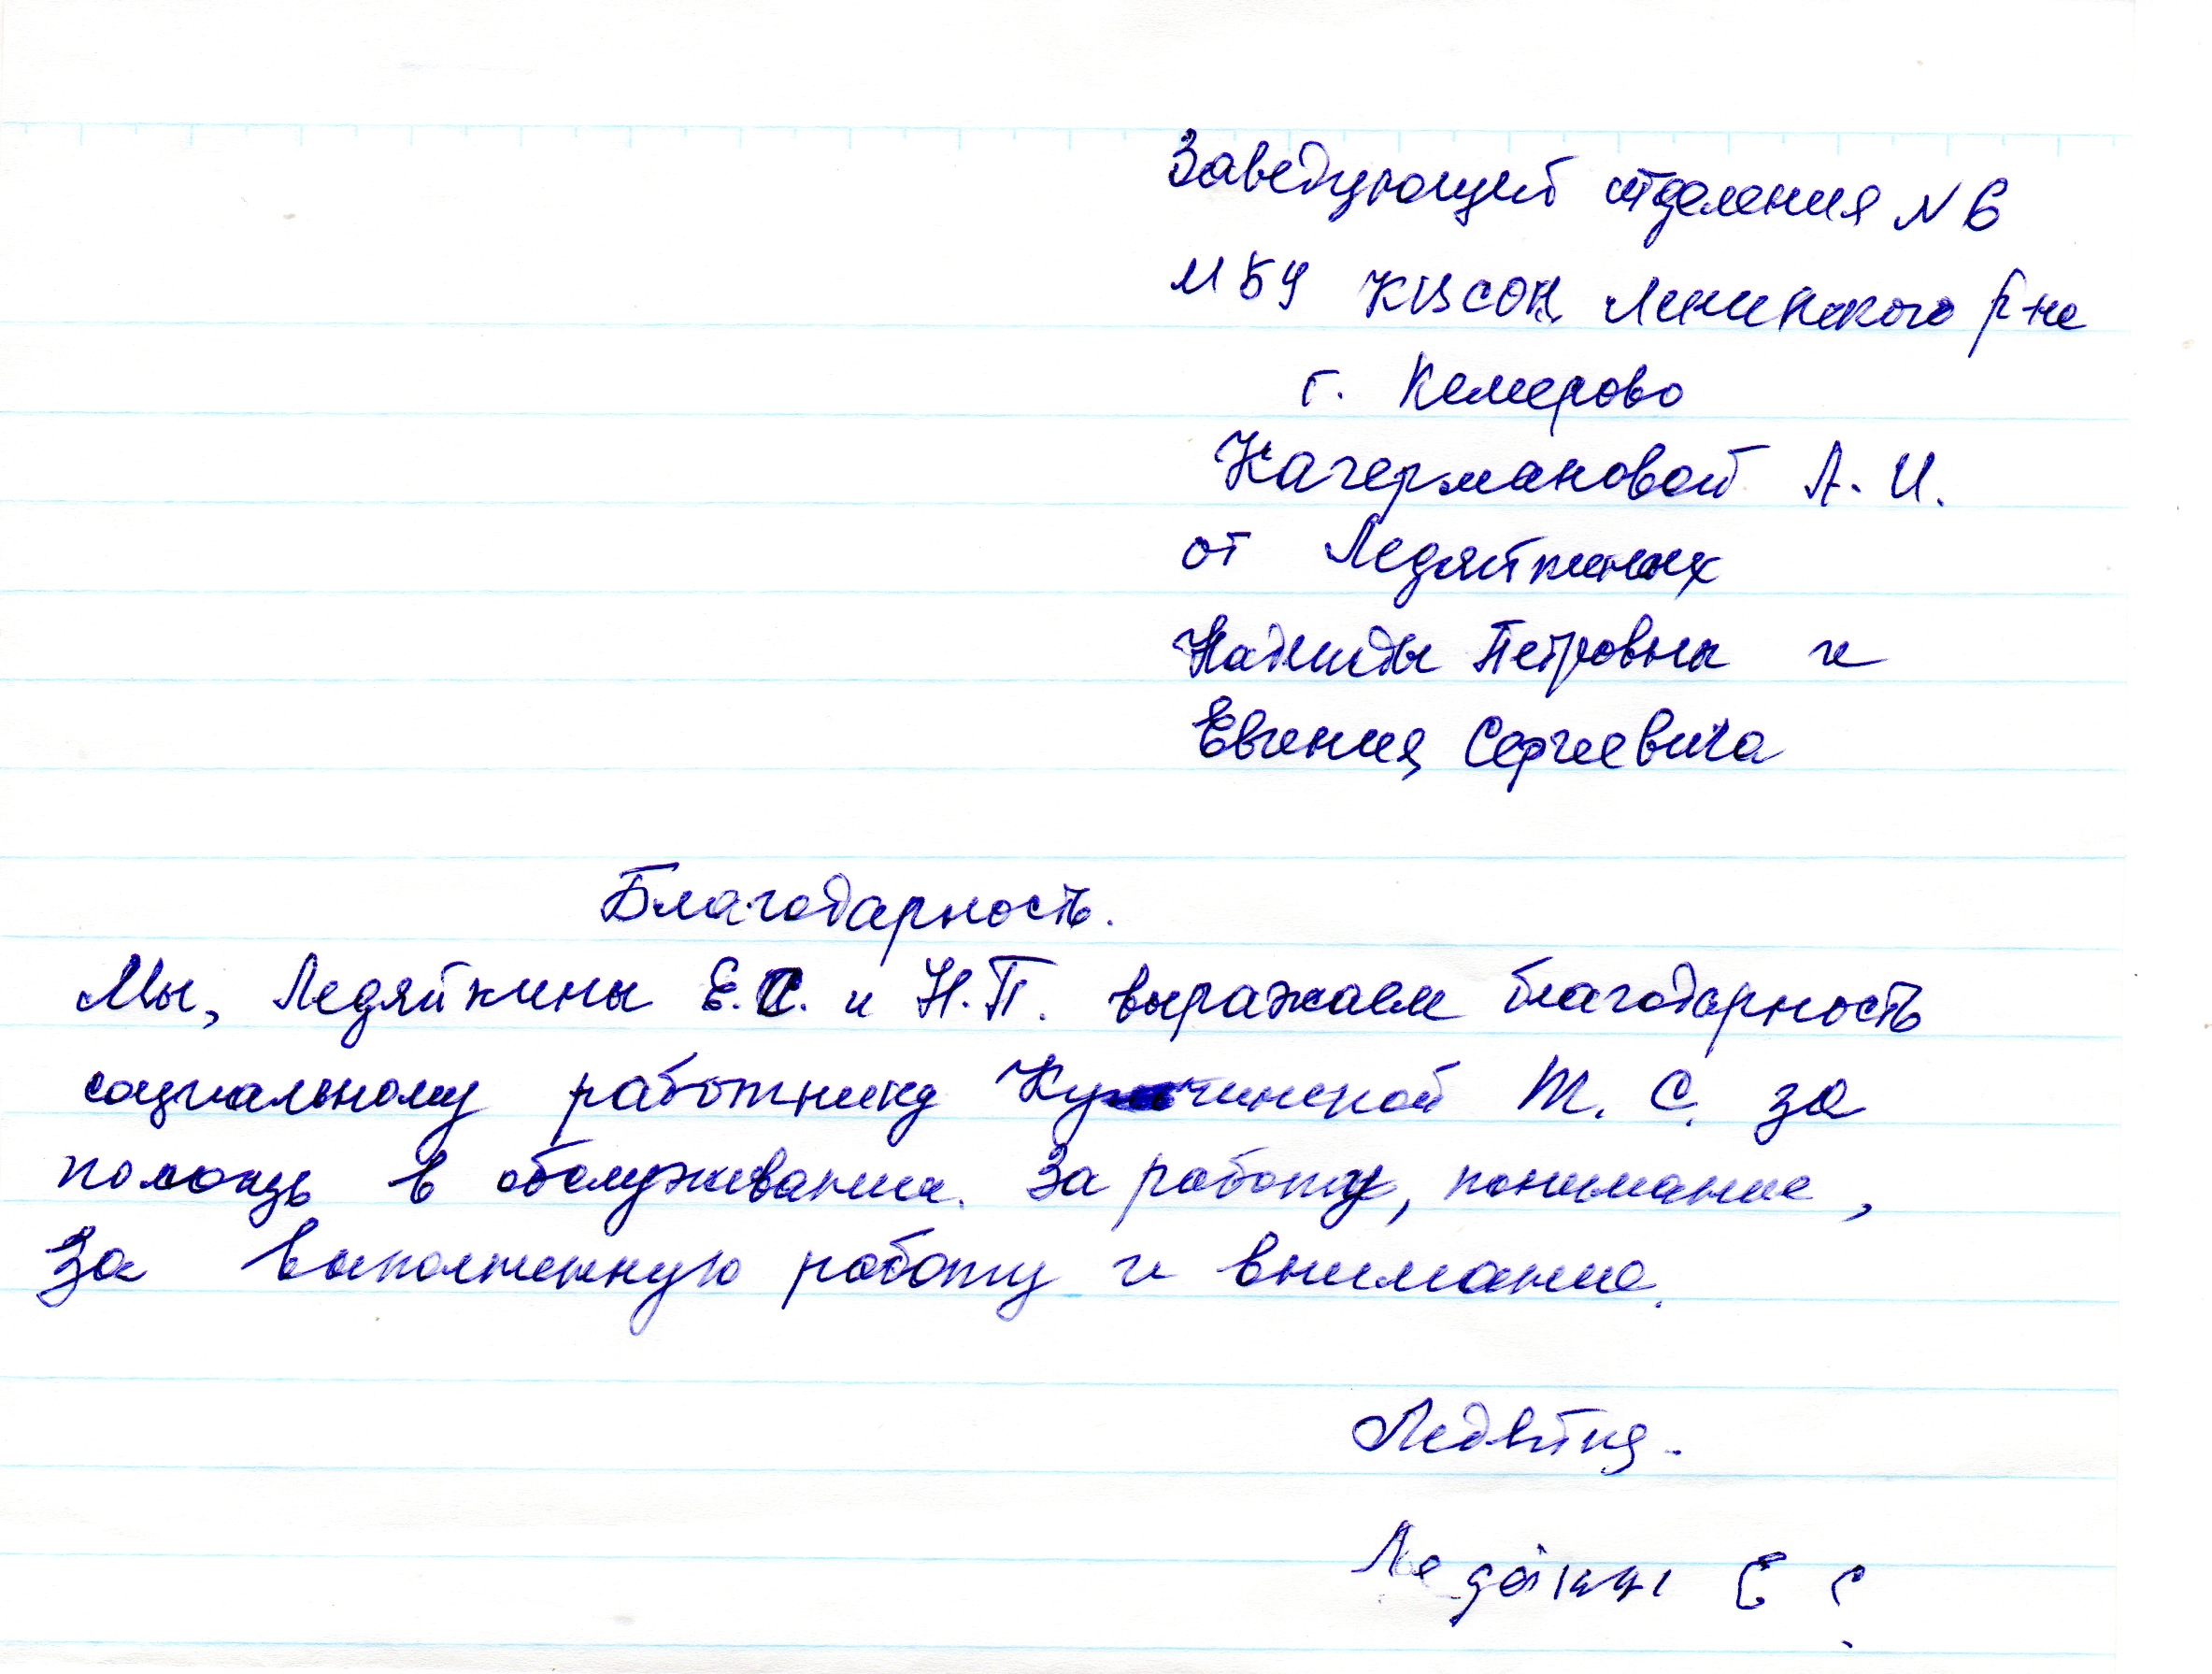 Заведующей отделения N 6
МБУ КЦСОН Ленинского р-на
г. Кемерово
Кагермановой А. И.
от Ледяйкиных
Надежды Петровны и
Евгения Сергеевича
Благодарность.
Мы, Ледяйкины Е.С. и Н.П. выражаем благодарность
социальному работнику Т. С. за
помощь в обслуживании. За работу, понимание,
За выполненную работу и внимание.
Е С